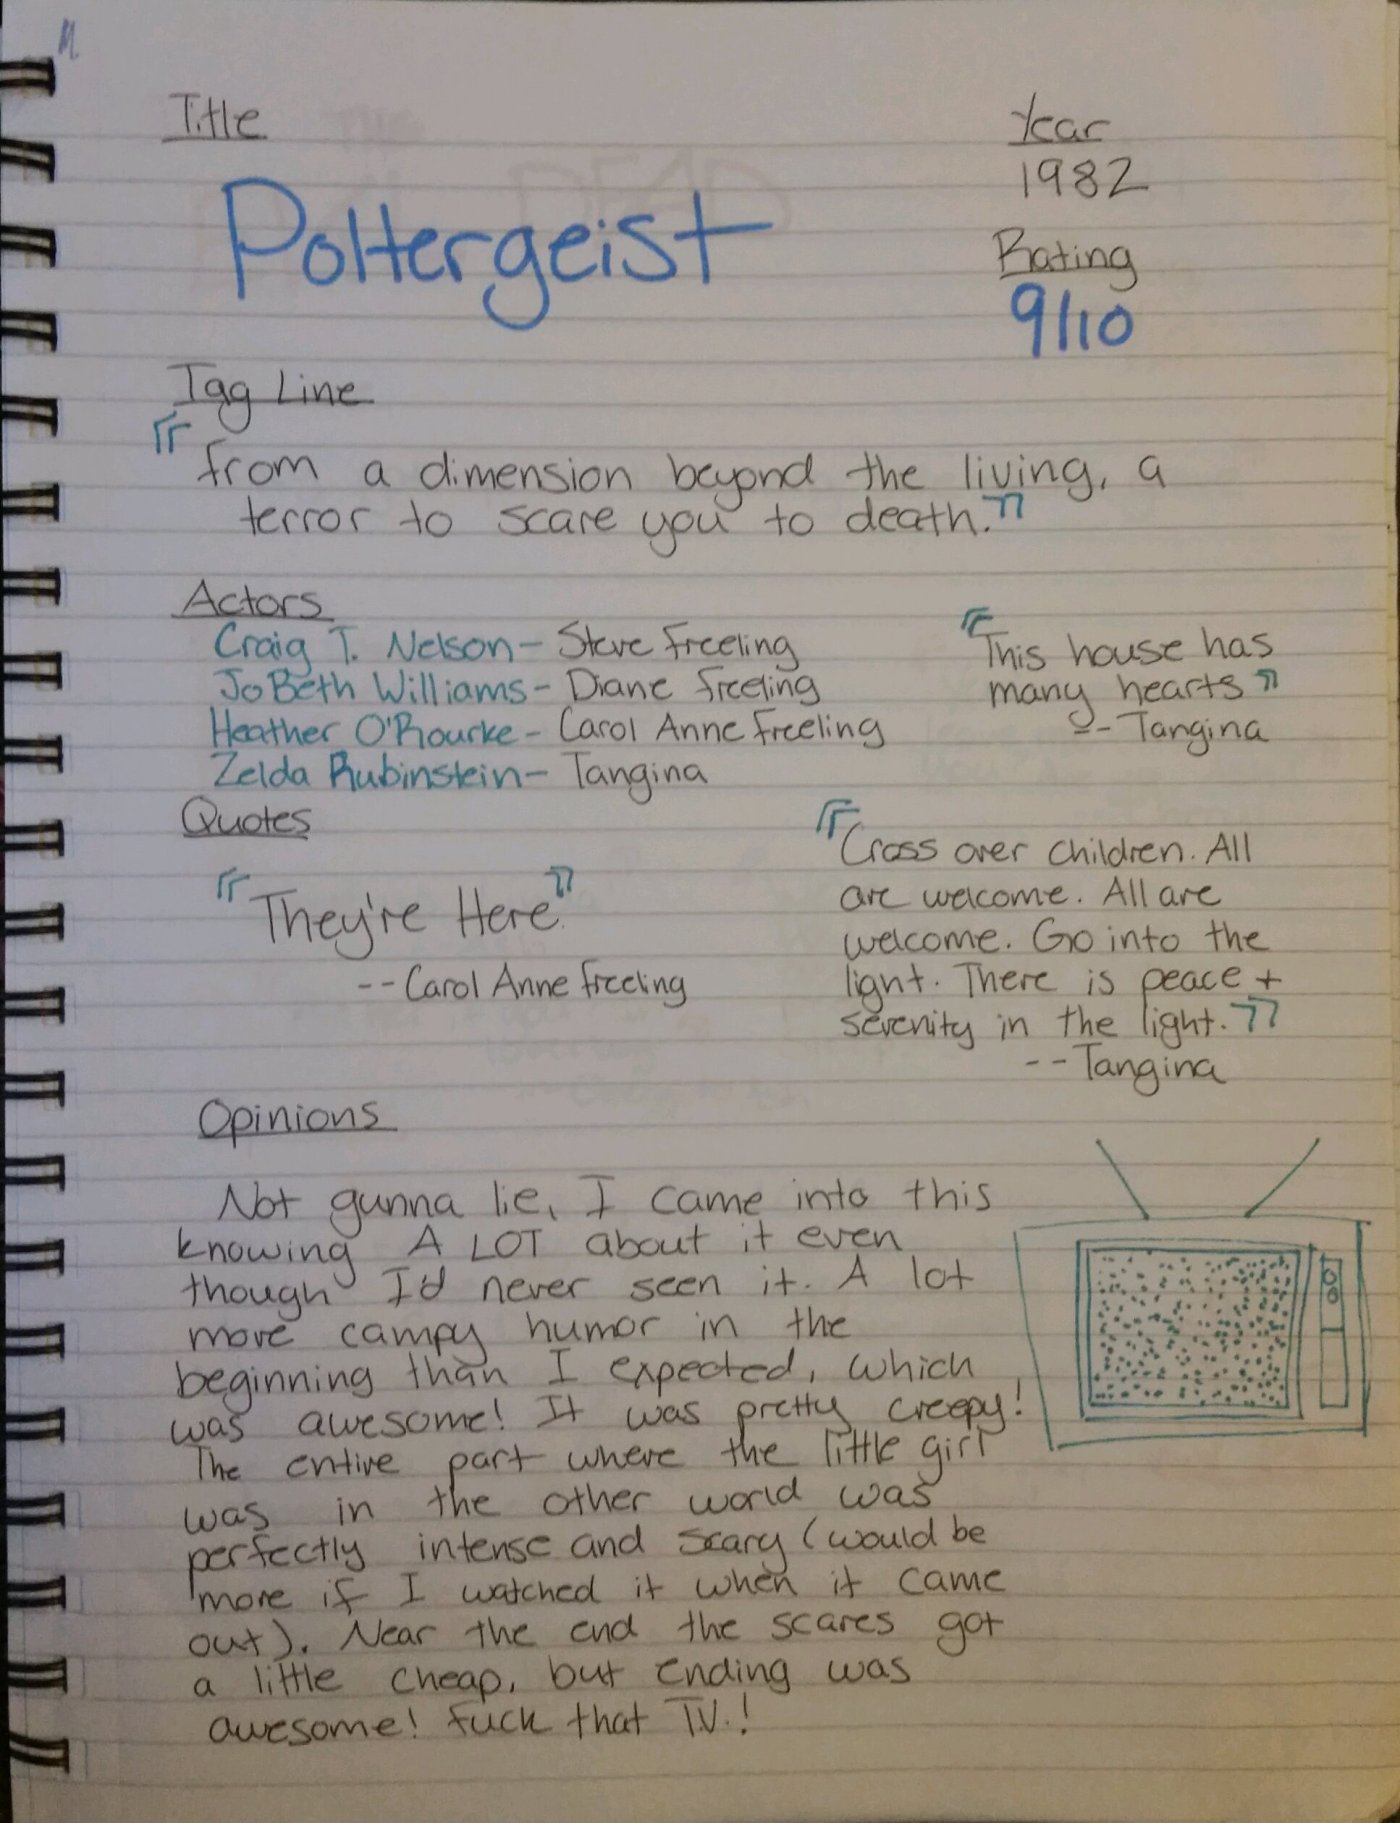 Title
Poltergeist
Year
1982
Rating
9/10
Tag Line
"from a dimension beyond the living, a
terror to scare you to death."
Actors
Craig T. Nelson - Steve Freeling
JoBeth Williams - Diane Freeling
Heather O'Rourke - Carol Anne Freeling
Zelda Rubinstein - Tangina
"This house has
many hearts"
-- Tangina
Quotes
"They're Here."
-- Carol Anne Freeling
"Cross over children. All
are welcome. All are
welcome. Go into the
light. There is peace +
serenity in the light."
-- Tangina
Opinions
Not gunna lie, I came into this
knowing A LOT about it even
though I'd never seen it. A lot
more campy humor in the
beginning than I expected, which
was awesome! It was pretty creepy!
The entire part where the little girl
was in the other world was
perfectly intense and scary (would be
more if I watched it when it came
out). Near the end the scares got
a little cheap, but ending was
awesome! Fuck that T.V.!